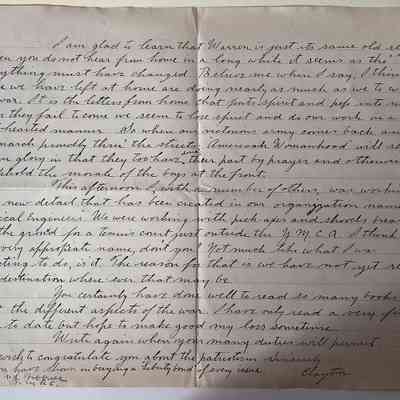 I am glad to learn that Warren is just its same old
en you do not hear from home in a long while it seems as tho'
ything must have changed. Believe me when I say, I think
e we have left at home are doing nearly as much as we to w
war. It is the letters from home that puts spirit and pep into
n they fail to come we seem to lose spirit and do our work in a
hearted manner. So when our victorious army comes back and
march proudly thru' the streets, American Womanhood will
in glory in that they too have their part by prayer and otherwise
phold the morale of the boys at the front.
This afternoon I, with a number of others, was working
new detail that has been created in our organization name
ical engineers. We were working with pick-axes and shovels brea
the ground for a tennis court just outside the Y.M.C.A. I think
very appropiate name, don't you? Not much like what I was
cting to do, is it. The reason for that is we have not yet re
destination where ever that may be.
You certainly have done well to read so many books
the different aspects of the war. I have only read a very f
to date but hope to make good my loss sometime.
Write again when your many duties will permit
to congratulate you about the patriotism Sincerely
u have shown in buying a liberty bond of every issue. Clayton